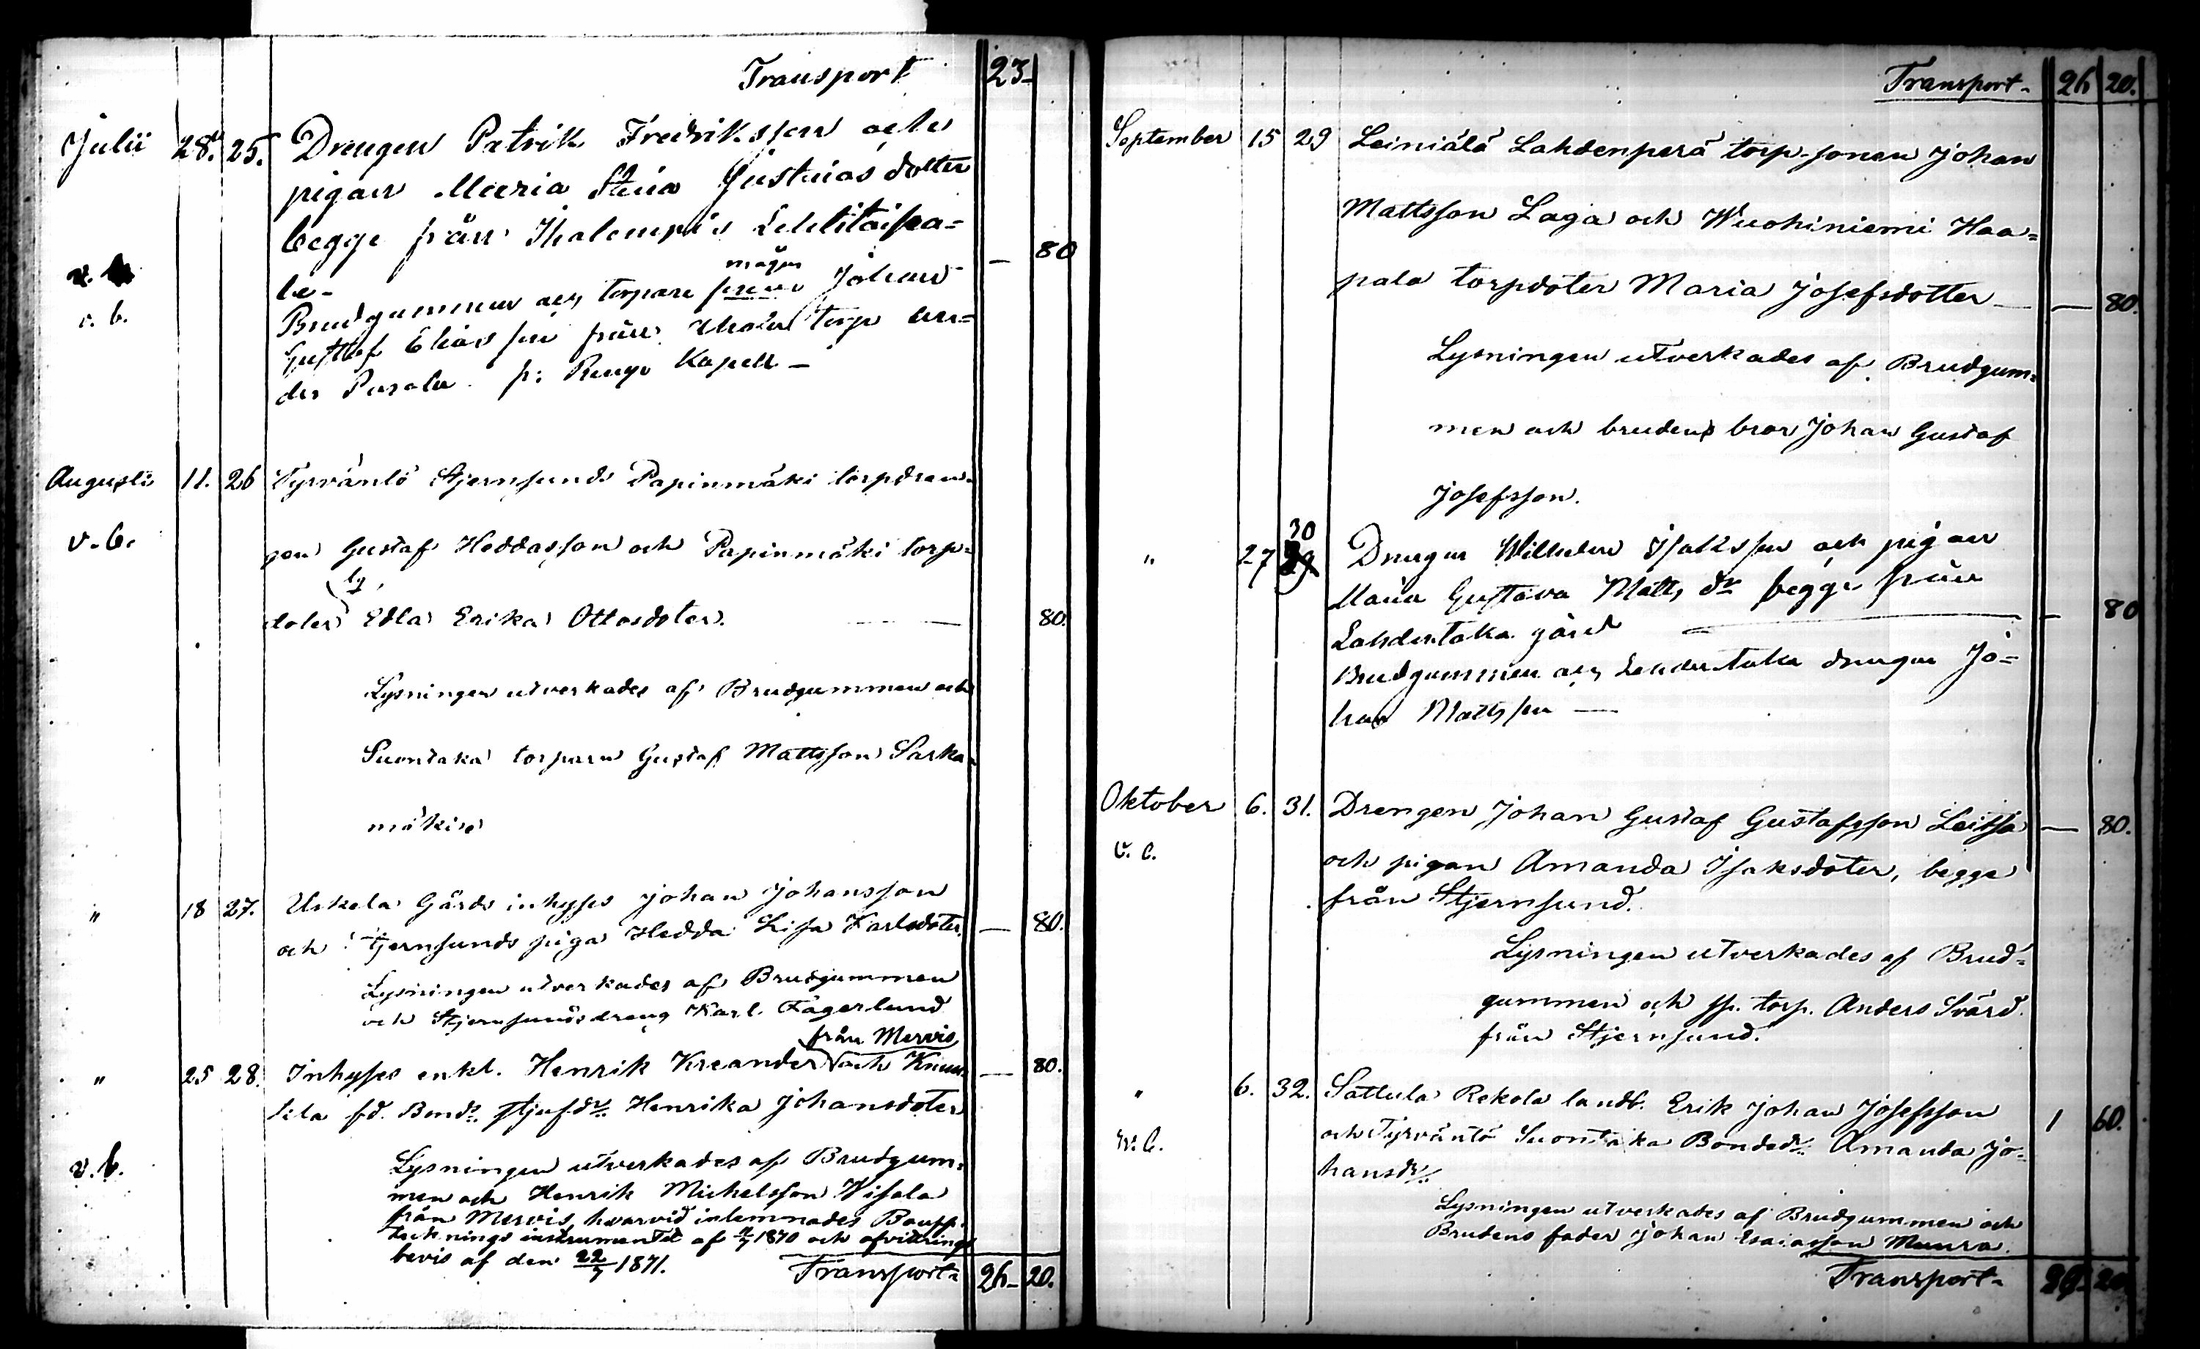 Transport 23-
Julii 28. 25. Drengen Patrik Fredriksson och
pigan Maria Stina Justinasdotter
begge från Ihalempis
le- — 80
v. b.
mågen
Brudgummen och torpare Johan
Gustaf Eliasson från torp un=
der Pusala. Kapell —
Augusti 11. 26 Tyrväntö Stjernsunds Papinmäki torpdren-
v. b. gen Gustaf Heddasson och Papinmäki torp-
doter Edla Erika Ottosdoter. — 80.
Lysningen utverkades af Brudgummen och
Suontaka torparn Gustaf Mattsson Sarka-
mäkise
" 18 27. Uskela Gårds inhyses Johan Johansson
och Stjernsunds piga Hedda Lisa Karlsdoter. — 80.
Lysningen utverkades af Brudgummen
och Stjernsundsdreng Karl Fagerlund
från Mervis
" 25 28. Inhyses enkl. Henrik Kreander och
fd. Bonds stjufdr. Henrika Johansdoter — 80.
v. b. Lysningen utverkades af Brudgum-
men och Henrik Michelsson Wisala
från Mervis, hvarvid inlemnades Boupp-
teckningsinstrumentet af 1870 och afvittrings
bevis af den 22/7 1871. Transport- 26- 20.
Transport- 26 20.
September 15 29 Leiniälä Lahdenperä torp-sonen Johan
Mattsson Laga och Wuohiniemi Haa=
pala torpdoter Maria Josefsdotter — 80.
Lysningen utverkades af Brudgum=
men och brudens bror Johan Gustaf
Josefsson.
30
" 27 29. Drengen Wilhelm Isaksson och pigan
Maria Gustava Matts dr begge från
Lahdentaka gård — 80
Brudgummen och Lahdentaka drengen Jo=
han Mattsson —
Oktober 6. 31. Drengen Johan Gustaf Gustafsson Leissa — 80.
v. b. och pigan Amanda Isaksdoter, begge
från Stjernsund.
Lysningen utverkades af Brud-
gummen och sp. torp. Anders Svärd
från Stjernsund.
" 6. 32. Sattula Rekola landb. Erik Johan Josefsson
v. b. och Tyrväntö Suontaka Bondedr. Amanda Jo- 1 60.
hansdr.
Lysningen utverkades af Brudgummen och
Brudens fader Johan Esaiasson Muura.
Transport- 29- 20